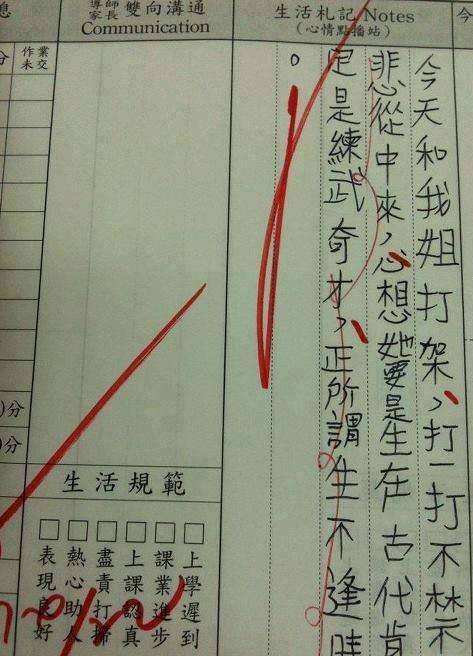 生活札記 Notes
(心情點播站)
今天和我姐打架,打一打不禁
悲從中來,心想她要是生在古代肯
定是練武奇才,正所謂生不逢時
。
導師
家長
雙向溝通
Communication
生活規範
上學遲到
課業進步
上課認真
盡責打掃
熱心助人
表現良好
作業
未交
)分
)分